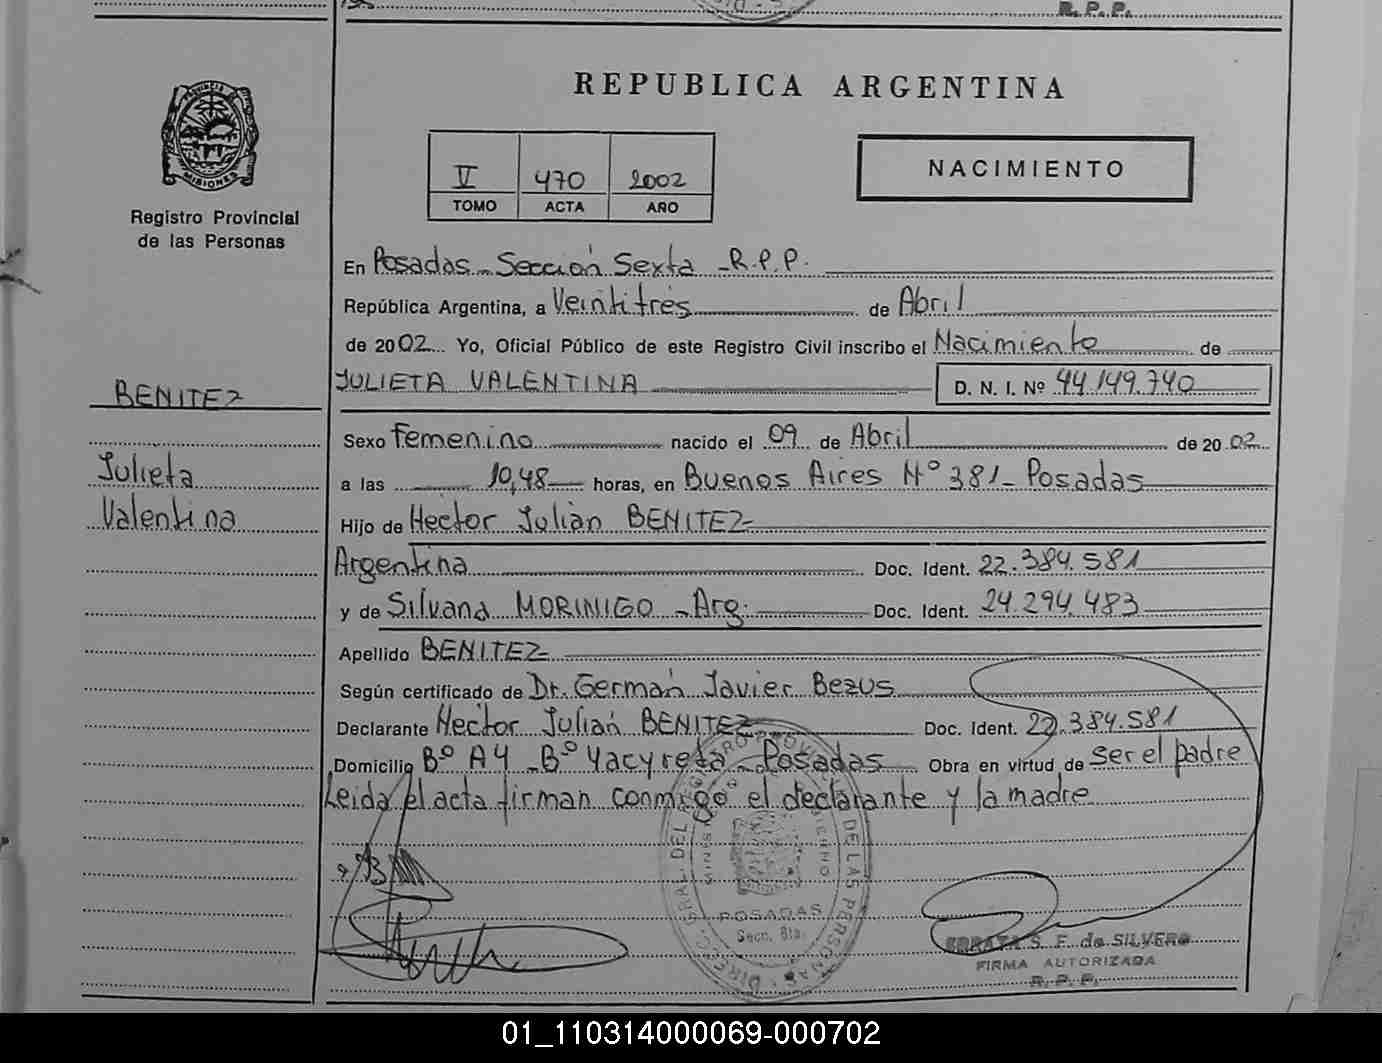 R. P. P.
REPUBLICA ARGENTINA
PROVINCIA DE MISIONES
Registro Provincial
de las Personas
V 470 2002
TOMO ACTA AÑO
NACIMIENTO
En Posadas - Sección Sexta - R.P.P.
República Argentina, a Veintitrés de Abril
de 2002 Yo, Oficial Público de este Registro Civil inscribo el Nacimiento de
JULIETA VALENTINA D. N. I. Nº 44.149.740
BENITEZ
Julieta
Valentina
Sexo Femenino nacido el 09 de Abril de 2002
a las 10,48 horas, en Buenos Aires Nº 381 - Posadas
Hijo de Hector Julián BENITEZ
Argentina Doc. Ident. 22.384.581
y de Silvana MORINIGO - Arg. Doc. Ident. 24.294.483
Apellido BENITEZ
Según certificado de Dr. Germán Javier Bezus
Declarante Hector Julián BENITEZ Doc. Ident. 22.384.581
Domicilio Bº A4 - Bº Yacyreta - Posadas Obra en virtud de ser el padre
Leida el acta firman conmigo el declarante y la madre
POSADAS
DE LAS PERSONAS
S. F. de SILVERO
FIRMA AUTORIZADA
R. P. P.
01_110314000069-000702